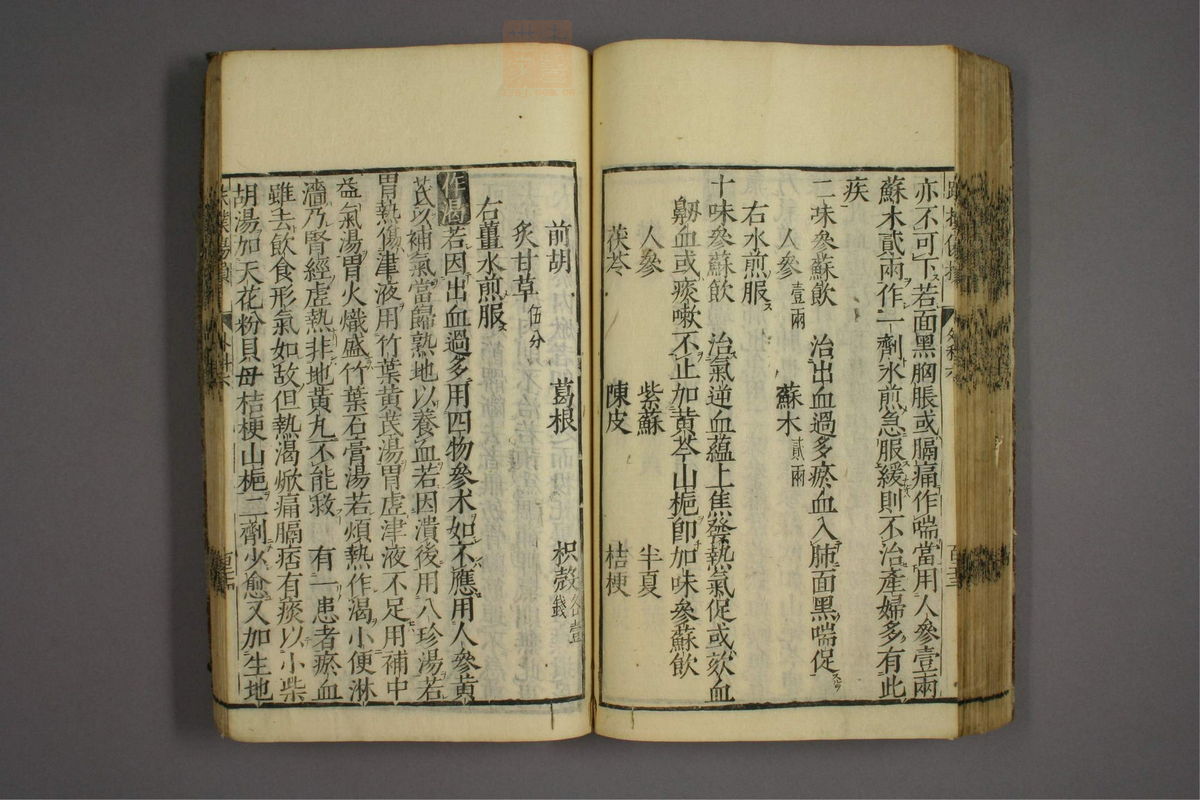 亦不可下若面黑胸脹或膈痛作喘當用人參壹兩
蘇木貳兩作一劑水煎急服緩則不治產婦多有此
疾
二味參蘇飲 治出血過多瘀血入肺面黑喘促
人參壹兩 蘇木貳兩
右水煎服
十味參蘇飲 治氣逆血蘊上焦發熱氣促或欬血
衂血或痰嗽不止加黄芩山梔即加味參蘇飲
人參 紫蘇 半夏
茯苓 陳皮 桔梗
前胡 葛根 枳殻各壹錢
炙甘草伍分
右薑水煎服
作渴若因出血過多用四物參术如不應用人參黄
芪以補氣當歸熟地以養血若因潰後用八珍湯若
胃熱傷津液用竹葉黄芪湯胃虚津液不足用補中
益氣湯胃火熾盛竹葉石膏湯若煩熱作渴小便淋
濇乃腎經虚熱非地黄丸不能救 有一患者瘀血
雖去飲食形氣如故但熱渴焮痛膈痞有痰以小柴
胡湯加天花粉貝母桔梗山梔二劑少愈又加生地